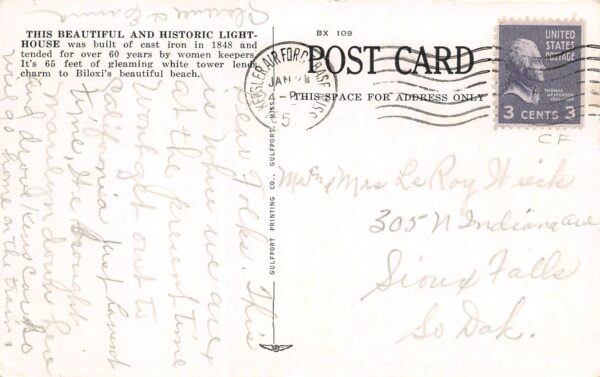 THIS BEAUTIFUL AND HISTORIC LIGHT-
HOUSE was built of cast iron in 1848 and
tended for over 60 years by women keepers.
It's 65 feet of gleaming white tower lends
charm to Biloxi's beautiful beach.
BX 109
POST CARD
THIS SPACE FOR ADDRESS ONLY
KEESLER AIR FORCE BASE MISS.
JAN
4-PM
5
UNITED
STATES
POSTAGE
THOMAS
JEFFERSON
3 CENTS 3
CF
GULFPORT PRINTING CO., GULFPORT, MISS.
Mr & Mrs LeRoy Wieck
305 N Indiana Ave
Sioux Falls
So Dak.
Dear Folks. This
is where we are
at the present time
went out to
California just haven't
time, He brought
Marilyn down here
and drove Kens car
go home on the train